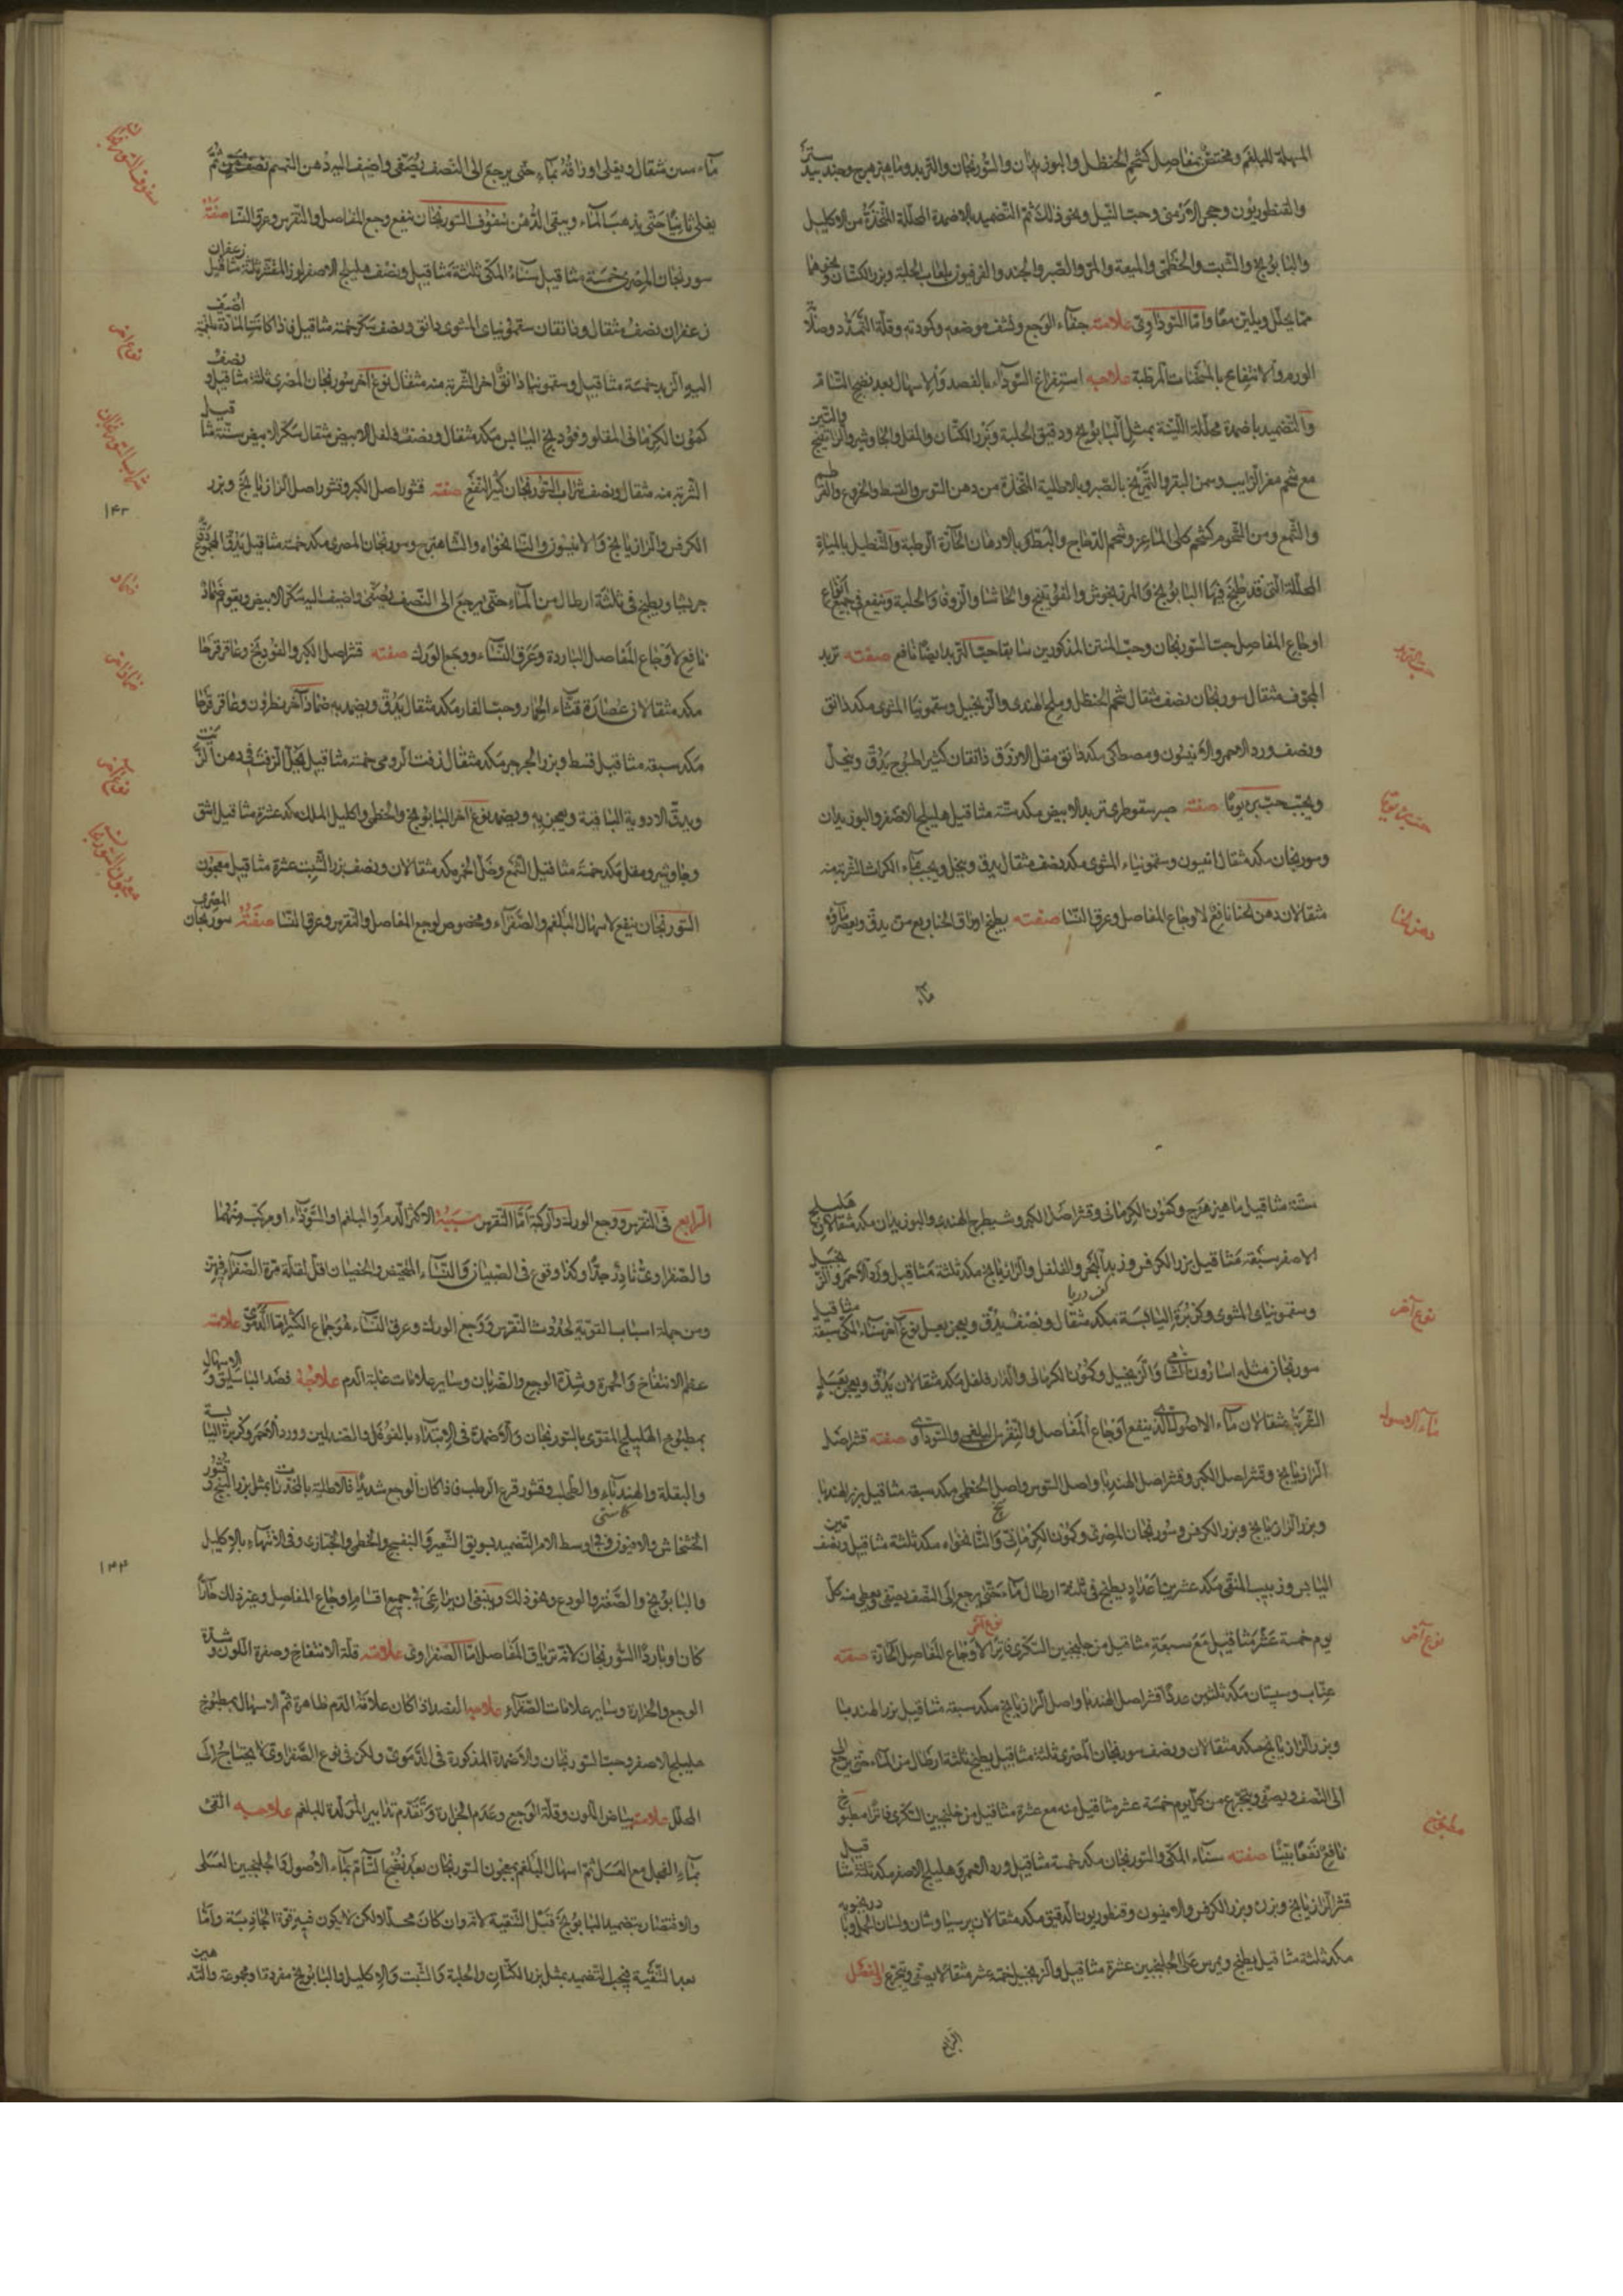 المسهلة للبلغم ومختص بمفاصل كشحم الحنظل والبوزيدان والسورنجان والتربد وماهيزهرج وجندبيدستر
والقنطوريون وحجر الارمنى وحب النيل ونحو ذلك ثم التضميد بالاضمدة المحللة المتخذة من الاكليل
والبابونج والشبت والخطمى والميعة والمر والصبر والجند والفرفيون بلعاب الحلبة وبزر الكتان ونحوهما
مما يحلل ويلين معا واما السوداوى علامته خفاء الوجع وكشف موضعه وكمودته وقلة التمدد وصلابة
الورم والانتفاخ بالمسخنات المرطبة علاجه استفراغ السوداء بالفصد والاسهال بعد نضج التام
والتضميد باضمدة محللة اللينة بمثل البابونج ودقيق الحلبة وبزر الكتان والمقل والجاوشير والراتينج والتين
مع شحم والزبيب وسمن البقر والتمريخ بالصبر وبالاطلية المتخذة من دهن السوس والقسط والخروع والقرطم
والشمع ومن الشحوم كشحم كلى الماعز وشحم الدجاج والبط وبالادهان الحارة الرطبة والتنطيل بالمياه
المحللة التى قد طبخ فيها البابونج والمرزنجوش والحاشا والزوفا والحلبة وينفع فى جميع انواع
اوجاع المفاصل حب السورنجان وحب المنتن المذكورين سابقا حب التربد ايضا نافع صفته تربد
المجوف مثقال سورنجان نصف مثقال شحم الحنظل وملح الهندى والزنجبيل وسقمونيا المشوى مكد دانق
ونصف ورد الاحمر والانيسون ومصطكى مكد دانق مقل الازرق دانقان كثيرا يدق وينخل
ويحبب حب صفته صبر سقوطرى تربد الابيض مكد ستة مثاقيل هليلج الاصفر والبوزيدان
وسورنجان مكد مثقال انيسون وسقمونياء المشوى مكد نصف مثقال يدق وينخل ويحبب بماء الكراث الشربة منه
مثقالان دهن الحنا نافع لاوجاع المفاصل وعرق النسا صفته يطبخ اوراق الحنا
حب التربد
دهن الحنا
ماء
ماء ستين مثقال ويغلى اوراقه بماء حتى يرجع الى النصف يصفى واضيف اليه دهن السمسم نصف ثم
يغلى ثانيا حتى يذهب الماء ويبقى الدهن سفوف السورنجان ينفع وجع المفاصل والنقرس وعرق النسا صفته
سورنجان المصرى خمسة مثاقيل سناء المكى ثلثة مثاقيل ونصف هليلج الاصفر لوز المقشر ثلثة مثاقيل زعفران
زعفران نصف مثقال ودانقان سقمونياى المشوى دانق ونصف سكر خمسة مثاقيل فاذا كانت المادة بلغمية اضيف
اليه التربد خمسة مثاقيل وسقمونيا دانق اخر الشربة منه مثقال نوع آخر سورنجان المصرى ثلثة مثاقيل ونصف
كمون الكرمانى المقلو وفودنج اليابس مكد مثقال ونصف فلفل الابيض مثقال سكر الابيض ستة مثاقيل
الشربة منه مثقال ونصف شراب السورنجان كثير النفع صفته قشور اصل الكبر وقشور اصل الرازيانج وبزر
الكرفس والرازيانج والانيسون والنانخواه والشاهترج وسورنجان المصرى مكد خمسة مثاقيل يدق المجموع
جريشا ويطبخ فى ثلثة ارطال من الماء حتى يرجع الى النصف يصفى واضيف اليه سكر الابيض ويقوم ضماد
نافع لاوجاع المفاصل الباردة وعرق النساء ووجع الورك صفته قشر اصل الكبر والفودنج وعاقرقرحا
مكد مثقالان عصارة قثاء الحمار وحب الغار مكد مثقال يدق ويضمد به ضماد آخر نطرون وعاقرقرحا
مكد سبعة مثاقيل قسط وبزر الجرجير مكد مثقال زفت الرومى خمسة مثاقيل يحل الزفت فى دهن الزيت
ويدق الادوية الباقية ويعجن به ويضمد نوع آخر البابونج والخطمى واكليل الملك مكد عشرة مثاقيل اشق
وجاوشير ومقل مكد خمسة مثاقيل الشمع وخل الخمر مكد مثقالان ونصف بزر الشبت عشرة مثاقيل معجون
السورنجان ينفع لاسهال البلغم والصفراء ومخصوص لوجع المفاصل والنقرس وعرق النسا صفته سورنجان المصرى
سفوف السورنجان
نوع آخر
شراب السورنجان
١٤٣
ضماد
ضماد آخر
نوع آخر
معجون السورنجان
ستة مثاقيل ماهيزهرج وكمون الكرمانى وقشر اصل الكبر وشيطرج الهندى والبوزيدان مكد مثقالان هليلج
الاصفر سبعة مثاقيل بزر الكرفس وزبد البحر والفلفل والرازيانج مكد ثلثة مثاقيل ورد الاحمر والزنجبيل
كف دريا
وسقمونياى المشوى وكزبرة اليابسة مكد مثقال ونصف يدق ويعجن بعسل نوع آخر سناء المكى سبعة مثاقيل
سورنجان مثله اسارون الشامى والزنجبيل وكمون الكرمانى والدارفلفل مكد مثقالان يدق ويعجن بعسل
الشربة مثقالان ماء الاصول الذى ينفع اوجاع المفاصل والنقرس البلغمى والسوداوى صفته قشر اصل
الرازيانج وقشر اصل الكبر وقشر اصل الهندبا واصل السوس واصل الخطمى مكد سبعة مثاقيل بزر الهندبا
وبزر الرازيانج وبزر الكرفس وسورنجان المصرى وكمون الكرمانى والنانخواه مكد ثلثة مثاقيل ونصف تين
اليابس وزبيب المنقى مكد عشرين عددا يطبخ فى ثلثة ارطال ماء حتى يرجع الى النصف يصفى ويعطى منه كل
يوم خمسة عشر مثاقيل مع سبعة مثاقيل من جلنجبين السكرى فاترا نوع آخر لاوجاع المفاصل الحارة صفته
عناب وسپستان مكد ثلثين عددا قشر اصل الهندبا واصل الرازيانج مكد سبعة مثاقيل بزر الهندبا
وبزر الرازيانج مكد مثقالان ونصف سورنجان المصرى ثلثة مثاقيل يطبخ ثلثة ارطال من الماء حتى يرجع الى
الى النصف ويصفى ويتجرع من كل يوم خمسة عشر مثاقيل منه مع عشرة مثاقيل من جلنجبين السكرى فاترا مطبوخ
نافع نفعا بينا صفته سناء المكى والسورنجان مكد خمسة مثاقيل ورد الاحمر وهليلج الاصفر مكد ثلثة مثاقيل
قشر الرازيانج وبزره وبزر الكرفس والانيسون وقنطوريون الدقيق مكد مثقالان پرسياوشان ولسان الحمل وبادرنجبويه
مكد ثلثة مثاقيل يطبخ ويمرس على الجلنجبين عشرة مثاقيل والزنجبيل خمسة عشر مثقالا يصفى ويتجرع الفصل
نوع آخر
ماء الاصول
نوع آخر
مطبوخ
الرابع
الرابع فى النقرس ووجع الورك والركبة اما النقرس سببه الاكثر الدم او البلغم او السوداء او مركب منهما
والصفراوى نادر جدا وكذا وقوع فى الصبيان والنساء الحيض والخصيان اقل لقلة مرة الصفراء فيهن
ومن جملة اسباب القوية لحدوث النقرس ووجع الورك وعرق النساء هو جماع الكثير اما الدموى علامته
عظم الانتفاخ والحمرة وشدة الوجع والضربان وساير علامات غلبة الدم علاجه فصد الباسليق والاسهال
بمطبوخ الهليلج المقوى بالسورنجان والاضمدة فى الابتداء بالفوفل والصندلين وورد الاحمر وكزبرة اليابسة
والبقلة والهندباء والطحلب وقشور قرع الرطب فاذا كان الوجع شديدا فالاطلية بالمخدرات بمثل بزر البنج وقشور
كاسنى
الخشخاش والافيون وفى اوسط الامر التضميد بسويق الشعير والبنفسج والخطمى والخبازى وفى الانتهاء بالاكليل
والبابونج والصعتر والودع ونحو ذلك وينبغى ان يراعى فى جميع اقسام اوجاع المفاصل وغير ذلك حارا
كان او باردا السورنجان لانه ترياق المفاصل اما الصفراوى علامته قلة الانتفاخ وصفرة اللون وشدة
الوجع والحرارة وساير علامات الصفراء علاجه الفصد اذا كان علامة الدم ظاهرة ثم الاسهال بمطبوخ
هليلج الاصفر وحب السورنجان والاضمدة المذكورة فى الدموى ولكن فى نوع الصفراوى لا يحتاج الى
المحلل علامته بياض اللون وقلة الوجع وعدم الحرارة وتقدم تدابير المولدة للبلغم علاجه القئ
بماء الفجل مع العسل ثم اسهال البلغم بمعجون السورنجان بعد نضجها التام بماء الاصول والجلنجبين العسلى
والاقتصار بتضميد البابونج قبل التنقية لانه وان كان محللا لكن لا يكون فيه قوة الجاذبة واما
بعد التنقية فيجب التضميد بمثل بزر الكتان والحلبة والشبت والاكليل والبابونج مفردة او مجموعة والتدهين
١٤٤